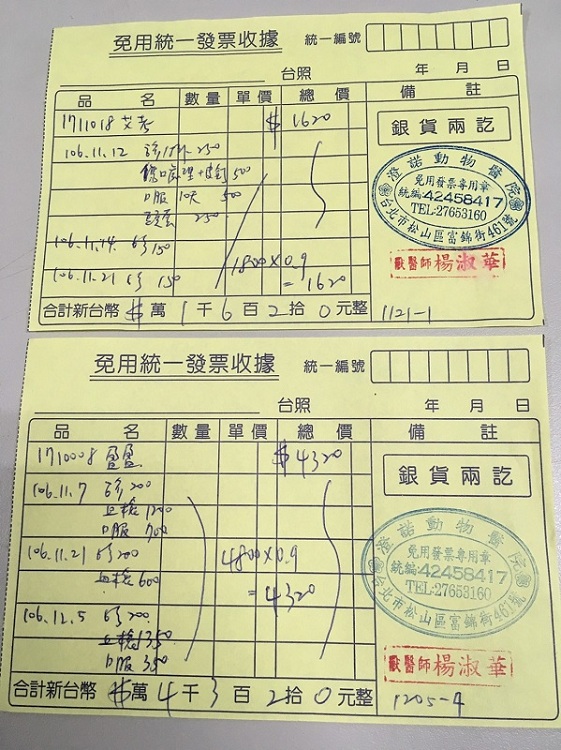 免用統一發票收據 統一編號
台照 年 月 日
品 名 數量 單價 總價 備 註
1711018 艾 $ 1620
銀貨兩訖
106.11.12 診 250
500
口服 10天 500
250
106.11.14. 150
106.11.21 150
1800 X 0.9
= 1620
澄諾動物醫院
免用發票專用章
統編:42458417
TEL:27653160
台北市松山區富錦街461號
獸醫師 楊淑華
合計新台幣 $ 萬 1 千 6 百 2 拾 0 元整
1121-1
免用統一發票收據 統一編號
台照 年 月 日
品 名 數量 單價 總價 備 註
1710008 $ 4320
銀貨兩訖
106.11.7 診 200
血檢 1200
口服 700
106.11.21 200
血檢 600
4800 X 0.9
= 4320
106.12.5 200
血檢 1350
口服 350
澄諾動物醫院
免用發票專用章
統編:42458417
TEL:27653160
台北市松山區富錦街461號
獸醫師 楊淑華
合計新台幣 $ 萬 4 千 3 百 2 拾 0 元整
1205-4